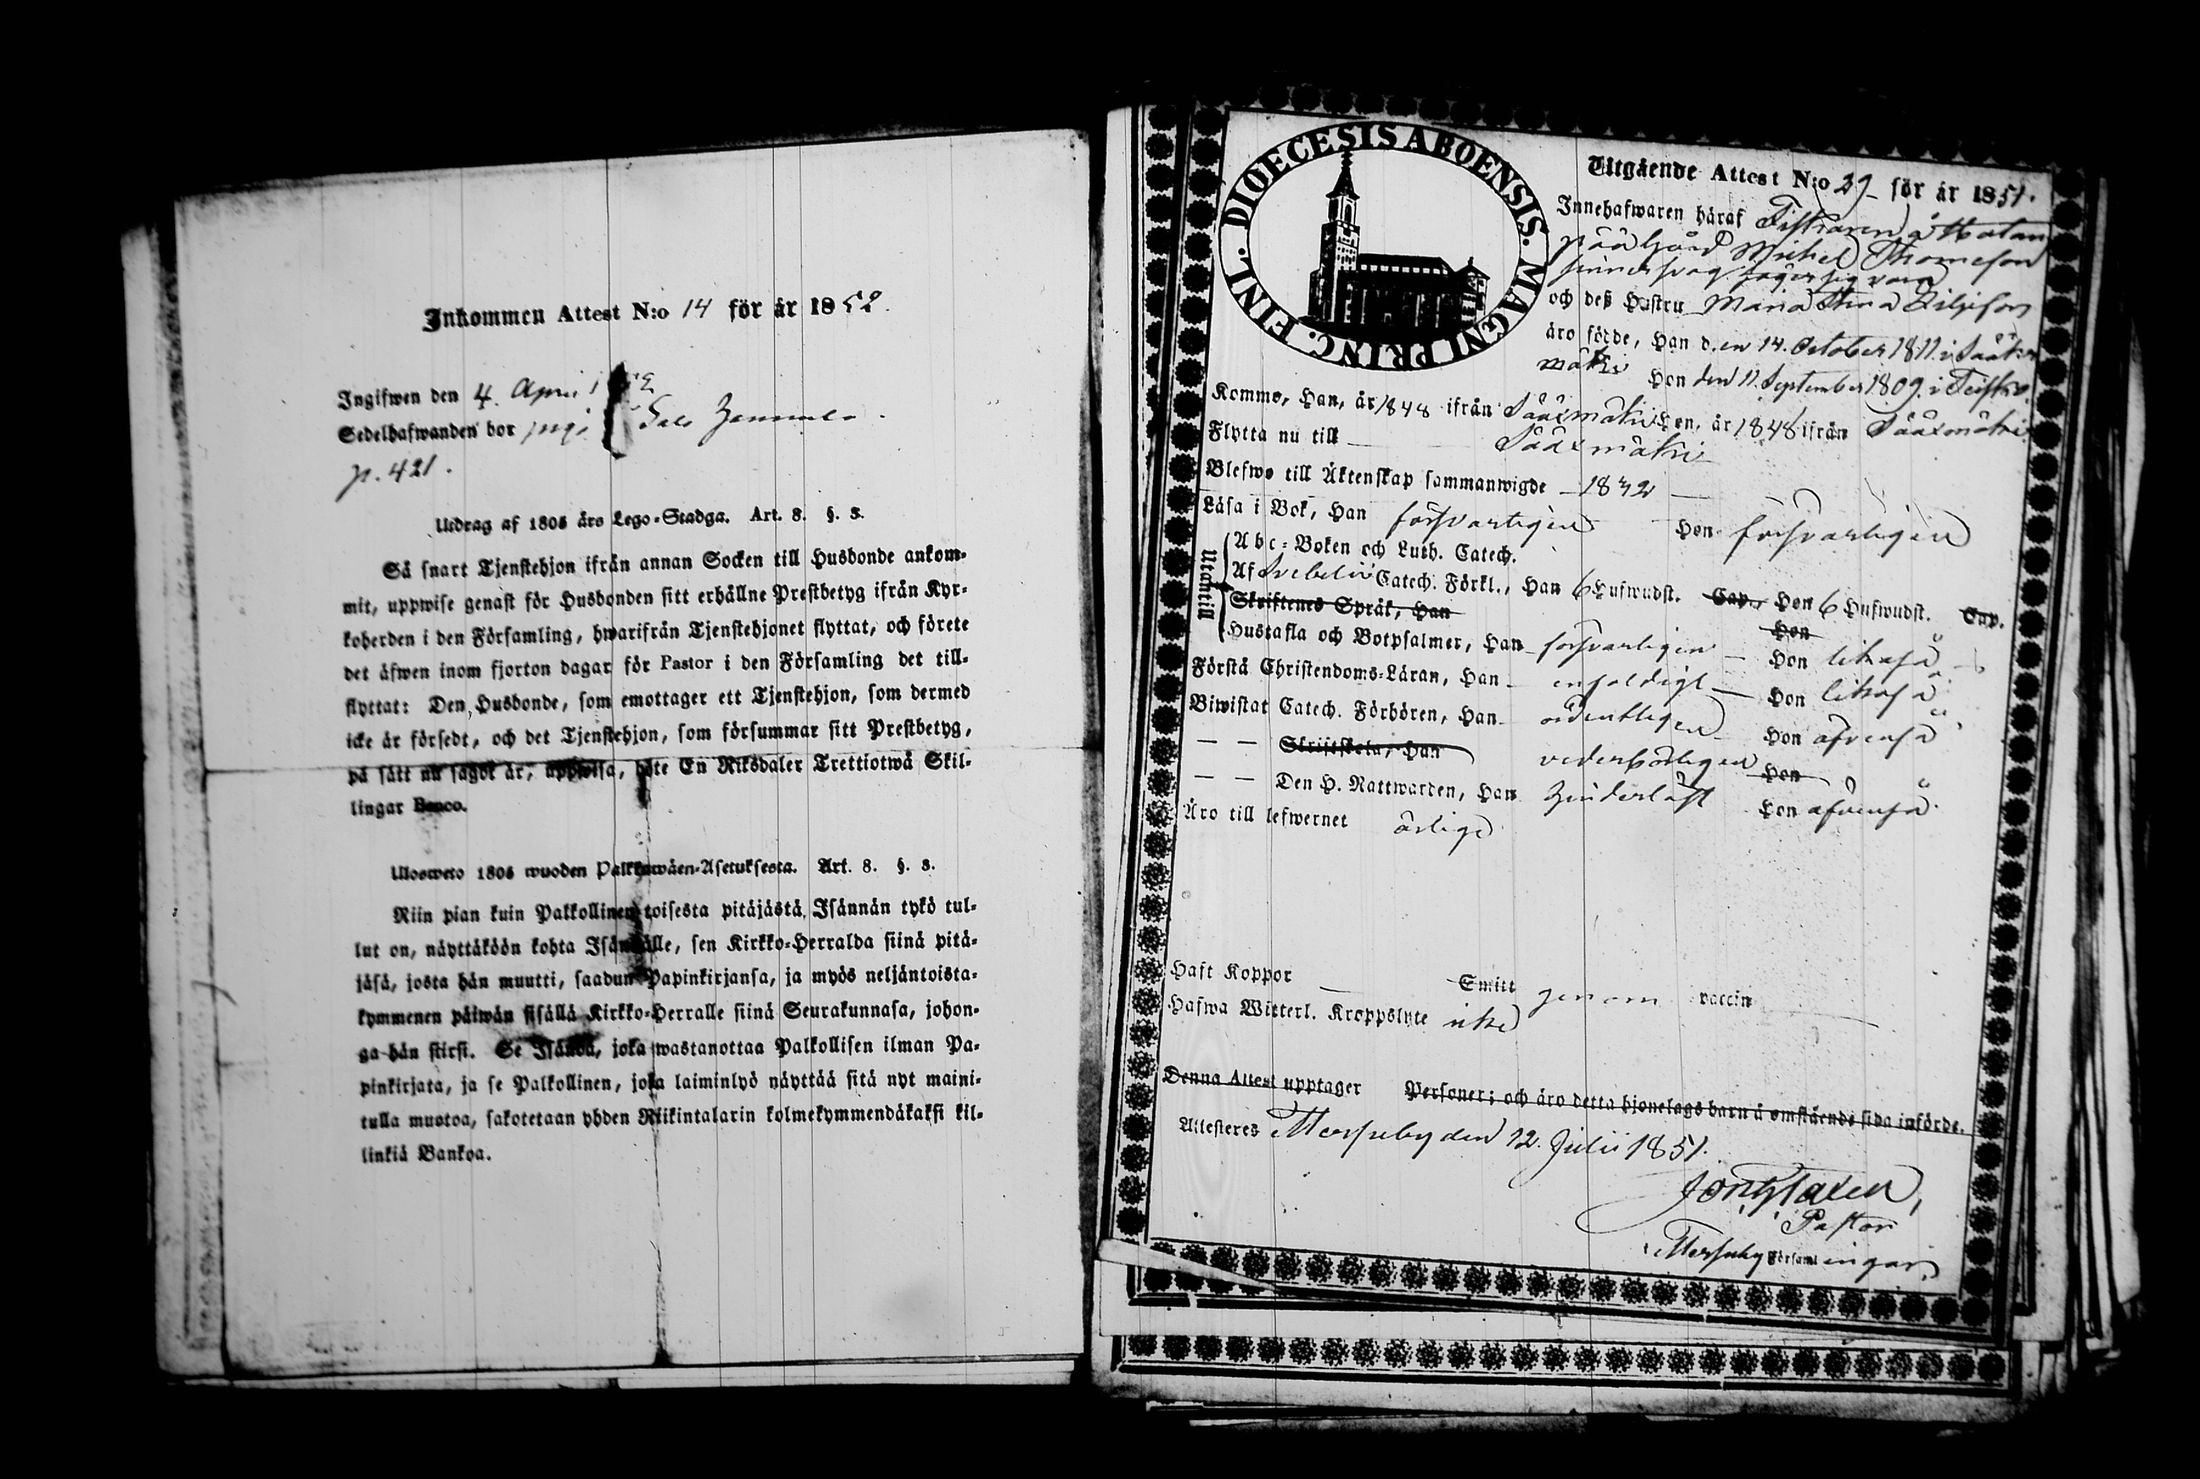 Inkommen Attest N:o 14 för år 1852.
Ingifwen den 4. April
Sedelhafwanden bor
p. 421.
Utdrag af 1805 års Lego-Stadga. Art. 8. §. 3.
Så snart Tjenstehjon ifrån annan Socken till Husbonde ankom-
mit, uppwise genast för Husbonden sitt erhållne Prestbetyg ifrån Kyr-
koherden i den Församling, hwarifrån Tjenstehjonet flyttat, och förete
det äfwen inom fjorton dagar för Pastor i den Församling det till-
flyttat: Den Husbonde, som emottager ett Tjenstehjon, som dermed
icke är försedt, och det Tjenstehjon, som försummar sitt Prestbetyg,
på sätt nu sagdt är, uppwisa, böte En Riksdaler Trettiotwå Skil-
lingar Banco.
Ulosweto 1805 wuoden Palkkawäen-Asetuksesta. Art. 8. §. 3.
Niin pian kuin Palkollinen toisesta pitäjästä Isännän tykö tul-
lut on, näyttäköön kohta Isännälle, sen Kirkko-Herralda siinä pitä-
jäsä, josta hän muutti, saadun Papinkirjansa, ja myös neljäntoista-
kymmenen päiwän sisällä Kirkko-Herralle siinä Seurakunnasa, johon-
ga hän siirsi. Se Isändä, joka wastanottaa Palkollisen ilman Pa-
pinkirjata, ja se Palkollinen, joka laiminlyö näyttää sitä nyt maini-
tulla muotoa, sakotetaan yhden Riikintalarin kolmekymmendäkaksi kil-
linkiä Bankoa.
DIOECESIS ABOENSIS. MAGNI PRINC. FINL.
Utgående Attest N:o 29 för år 1851.
Innehafwaren häraf
gård Michel Thomeson
och dess Hustru Maria Stina
äro födde, Han d.en 14. October 1811 i Sääx
mäki Hon den 11 September 1809 i
Kommo, Han, år 1848 ifrån Sääxmäki Hon, år 1848 ifrån Sääxmäki
Flytta nu till Sääxmäki
Blefwo till Äktenskap sammanwigde 1832
Läsa i Bok, Han försvarligen Hon försvarligen
Utantill
Abc-Boken och Luth. Catech.
Af Svebelii Catech. Förkl., Han 6 Hufwudst. Cap. Hon 6 Hufwudst. Cap.
Skriftenes Språk, Han Hon
Hustafla och Botpsalmer, Han försvarligen Hon likaså
Förstå Christendoms-Läran, Han enfaldigt Hon likaså
Biwistat Catech. Förhören, Han ordentligen Hon äfvenså
— — Skriftskola, Han vederbörligen Hon
— — Den H. Nattwarden, Han Hon äfvenså
Äro till lefwernet ärlige
Haft Koppor Smitt genom vaccin
Hafwa Witterl. Kroppslyte icke
Denna Attest upptager Personer; och äro detta hjonelags barn å omstående sida införde.
Attesteras Mersuby den 12. Julii 1851.
Pastor
Församlingar